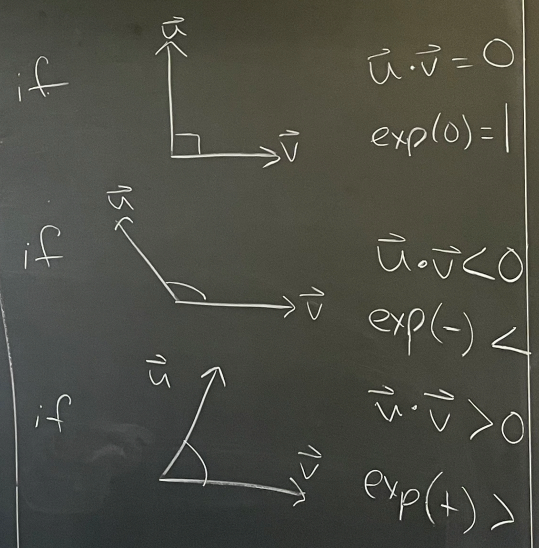 if u⃗ v⃗ u⃗·v⃗ = 0
exp(0) = 1
if u⃗ v⃗ u⃗·v⃗ < 0
exp(-) <
if u⃗ v⃗ u⃗·v⃗ > 0
exp(+) >